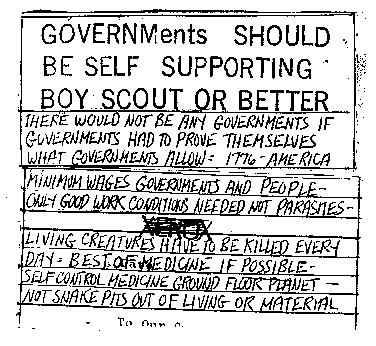 GOVERNMents SHOULD
BE SELF SUPPORTING
BOY SCOUT OR BETTER
THERE WOULD NOT BE ANY GOVERNMENTS IF
GOVERNMENTS HAD TO PROVE THEMSELVES
WHAT GOVERNMENTS ALLOW = 1776 - AMERICA
MINIMUM WAGES GOVERNMENTS AND PEOPLE -
ONLY GOOD WORK CONDITIONS NEEDED NOT PARASITES -
LIVING CREATURES HAVE TO BE KILLED EVERY
DAY = BEST OF MEDICINE IF POSSIBLE -
SELF CONTROL MEDICINE GROUND FLOOR PLANET -
NOT SNAKE PITS OUT OF LIVING OR MATERIAL